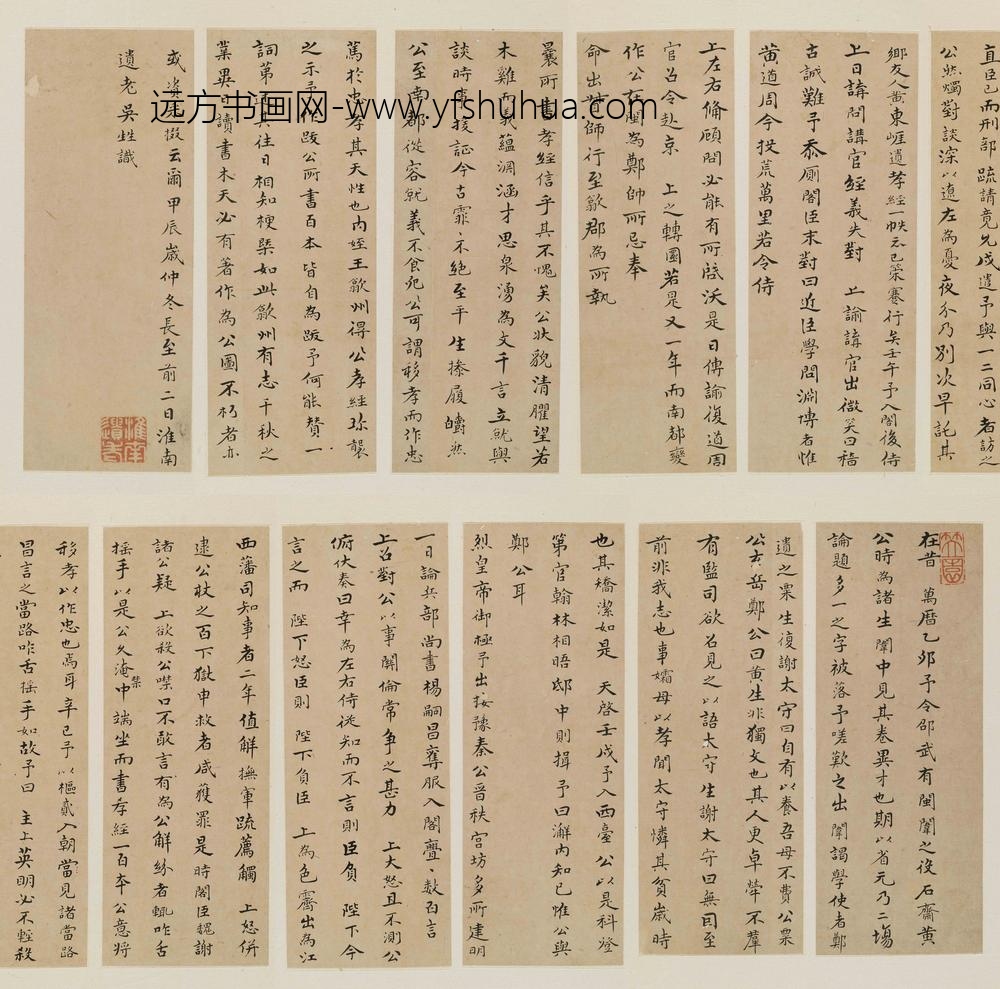 直臣已而刑部疏請竟允戍遣予與一二同心者訪之
公然燭對談深以遼左為憂夜分乃別次早託其
鄉友黃東崖遺孝經一帙云已策蹇行矣壬午予入閣後侍
上日講問講官經義失對 上諭講官出微笑曰稽
古誠難予忝廁閣臣末對曰近臣學問淵博者惟
黃道周今投荒萬里若令侍
上左右俻顧問必能有所啓沃是日傳諭復道周
官召令赴京 上之轉圜若是又一年而南都變
作公在閩為鄭帥所忌奉
命出督師行至歙郡為所執
曩所書孝經信乎其不愧矣公狀貌清臞望若
木雞而義蘊淵涵才思泉湧為文千言立就與
談時事援証今古霏霏不絕至平生操履皭然
公至南都從容就義不食死公可謂移孝而作忠
篤於忠孝其天性也內姪王歙州得公孝經珎襲
之示予作跋公所書百本皆自為跋予何能贊一
詞第述其往日相知梗槩如此歙州有志千秋之
業異日讀書木天必有著作為公圖不朽者亦
或資採掇云爾甲辰歲仲冬長至前二日淮南
遺老吳甡識
淮南遺老
远方书画网-www.yfshuhua.com
竹園
在昔 萬曆乙卯予令邵武有閩闈之役石齋黃
公時為諸生闈中見其卷異才也期以省元乃二場
論題多一之字被落予嗟歎之出闈謁學使者鄭
遺之粟生復謝太守曰自有以養吾母不費公粟
公玄岳鄭公曰黃生非獨文也其人更卓犖不羣
有監司欲召見之以語太守生謝太守曰無因至
前非我志也事孀母以孝聞太守憐其貧歲時
也其矯潔如是 天啓壬戌予入西臺公以是科登
第官翰林相晤邸中則揖予曰澥內知已惟公與
鄭公耳
烈皇帝御極予出按豫秦公晉秩宫坊多所建明
一日論兵部尚書楊嗣昌奪服入閣亹亹數百言
上召對公以事關倫常爭之甚力 上大怒且不測公
俯伏奏曰幸為左右侍從知而不言則臣負 陛下今
言之而 陛下怒臣則 陛下負臣 上為色霽出為江
西藩司知事者二年值觧撫軍疏薦觸 上怒併
逮公杖之百下獄申救者咸獲罪是時閣臣魏謝
諸公疑 上欲殺公噤口不敢言有為公解紛者輒咋舌
揺手以是公久淹禁中端坐而書孝經一百本公意将
移孝以作忠也焉耳辛已予以樞貳入朝當見諸當路
昌言之當路咋舌揺手如故予曰 主上英明必不輕殺